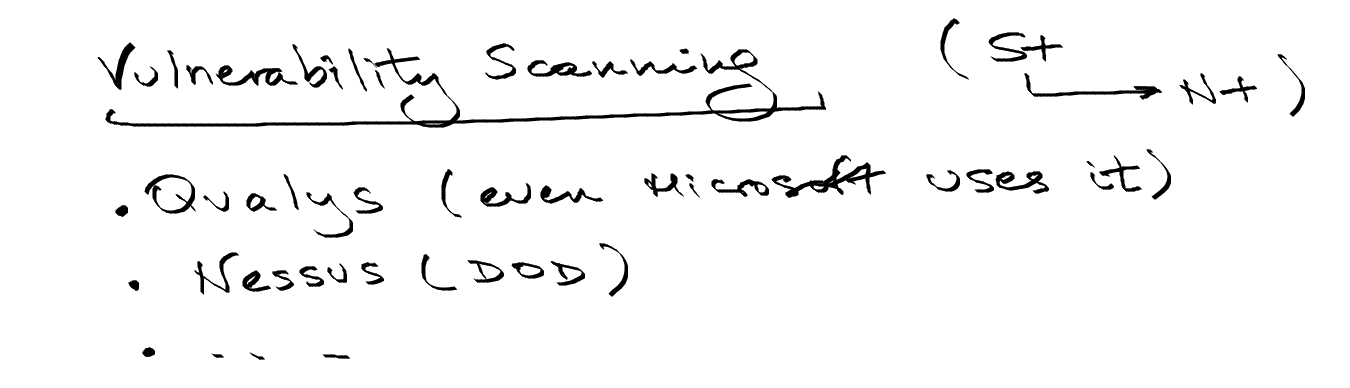 Vulnerability Scanning (S+
→ N+)
. Qualys (even Microsoft uses it)
. Nessus (DOD)
. .. -